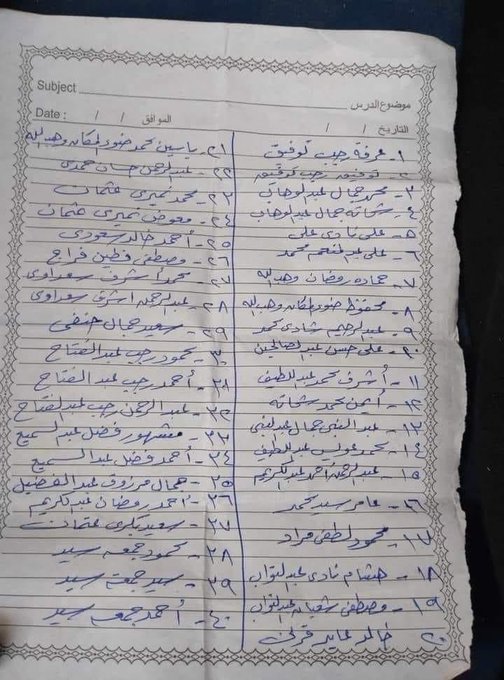 Subject موضوع الدرس
Date : / / الموافق / / التاريخ
١- عرفة رجب توفيق
٢- توفيق رجب توفيق
٣- محمد جمال عبدالوهاب
٤- شحاته جمال عبدالوهاب
٥- على نادى على
٦- على عبدالمنعم محمد
٧- حماده رمضان وهبدالله
٨- محفوظ ضوء المكان وهبدالله
٩- عبدالرحيم شادى محمد
١٠- على حسن عبدالصالحين
١١- أشرف محمد عبداللطيف
١٢- أيمن محمد شحاته
١٣- عبدالنبى جمال عبدالنبى
١٤- محمد عويس عبداللطيف
١٥- عبدالرحمن أحمد عبدالكريم
١٦- عامر سيد محمد
١٧- محمود لطفى مراد
١٨- هشام نادى عبدالتواب
١٩- مصطفى شعبان عبدالتواب
٢٠- خالد عايد قرنى
٢١- ياسين محمد ضوء المكان وهبدالله
٢٢- عبدالرحمن حسان حمدى
٢٣- محمد نميرى عثمان
٢٤- معوض نميرى عثمان
٢٥- أحمد خالد سعودى
٢٦- مصطفى فطين فراج
٢٧- محمد أشرف سعداوى
٢٨- عبدالرحمن أشرف سعداوى
٢٩- سعيد جمال حنفى
٣٠- محمود رجب عبدالفتاح
٣١- أحمد رجب عبد الفتاح
٣٢- عبدالرحمن رجب عبدالفتاح
٣٣- مشهور فضل عبدالسميع
٣٤- أحمد فضل عبدالسميع
٣٥- جمال مرزوق عبد الفضيل
٣٦- أحمد رمضان عبدكريم
٣٧- سعيد بكرى عثمان
٣٨- محمود جمعه سيد
٣٩- سيد جمعة سيد
٤٠- أحمد جمعه سيد